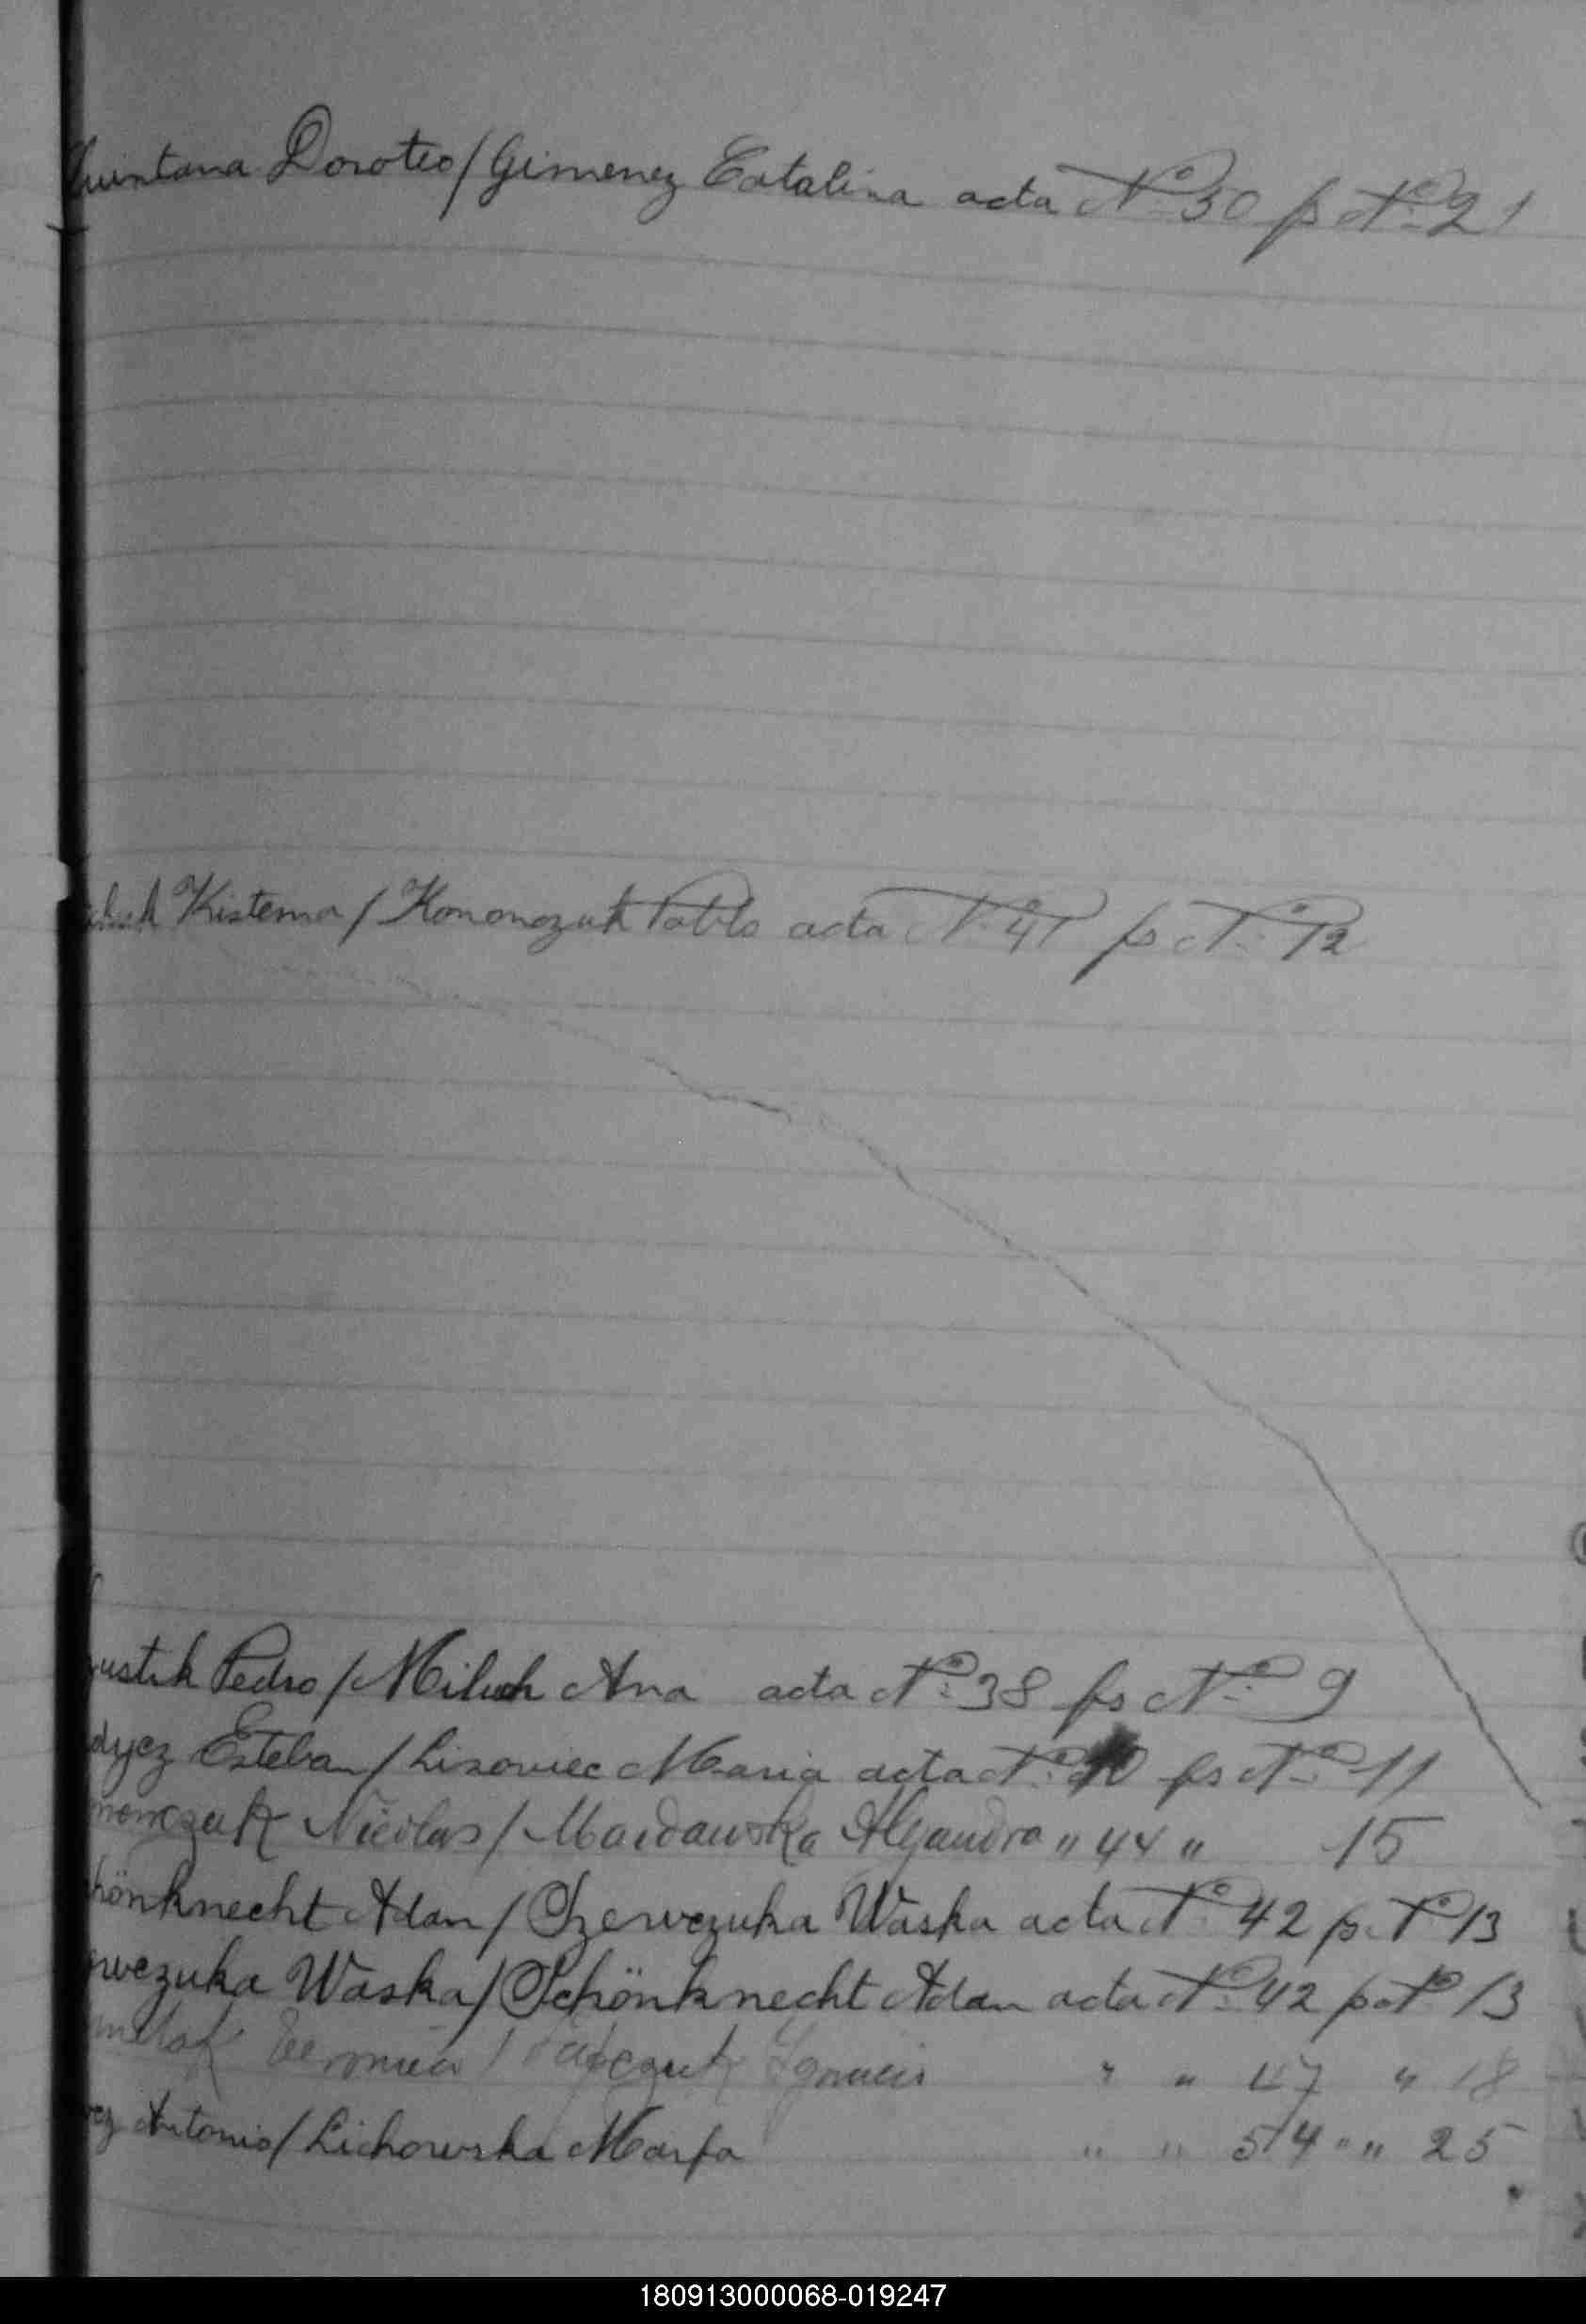 Quintana Doroteo / Gimenez Catalina acta Nº 30 fs Nº 21
Kistema / Kononczuk Pablo acta Nº 41 fs Nº 12
ustik Pedro / Miluch Ana acta Nº 38 fs Nº 9
dycz Esteban / Lisowiec Maria acta Nº 40 fs Nº 11
menczuk Nicolas / Maidawska Alejandra " 44 " 15
hönknecht Adan / Szerwczuka Waska acta Nº 42 fs Nº 13
rwczuka Waska / Schönknecht Adan acta Nº 42 fs Nº 13
Veronica / Ignacio " " 47 " 18
ez Antonio / Lichowska Marfa " " 54 " " 25
180913000068-019247